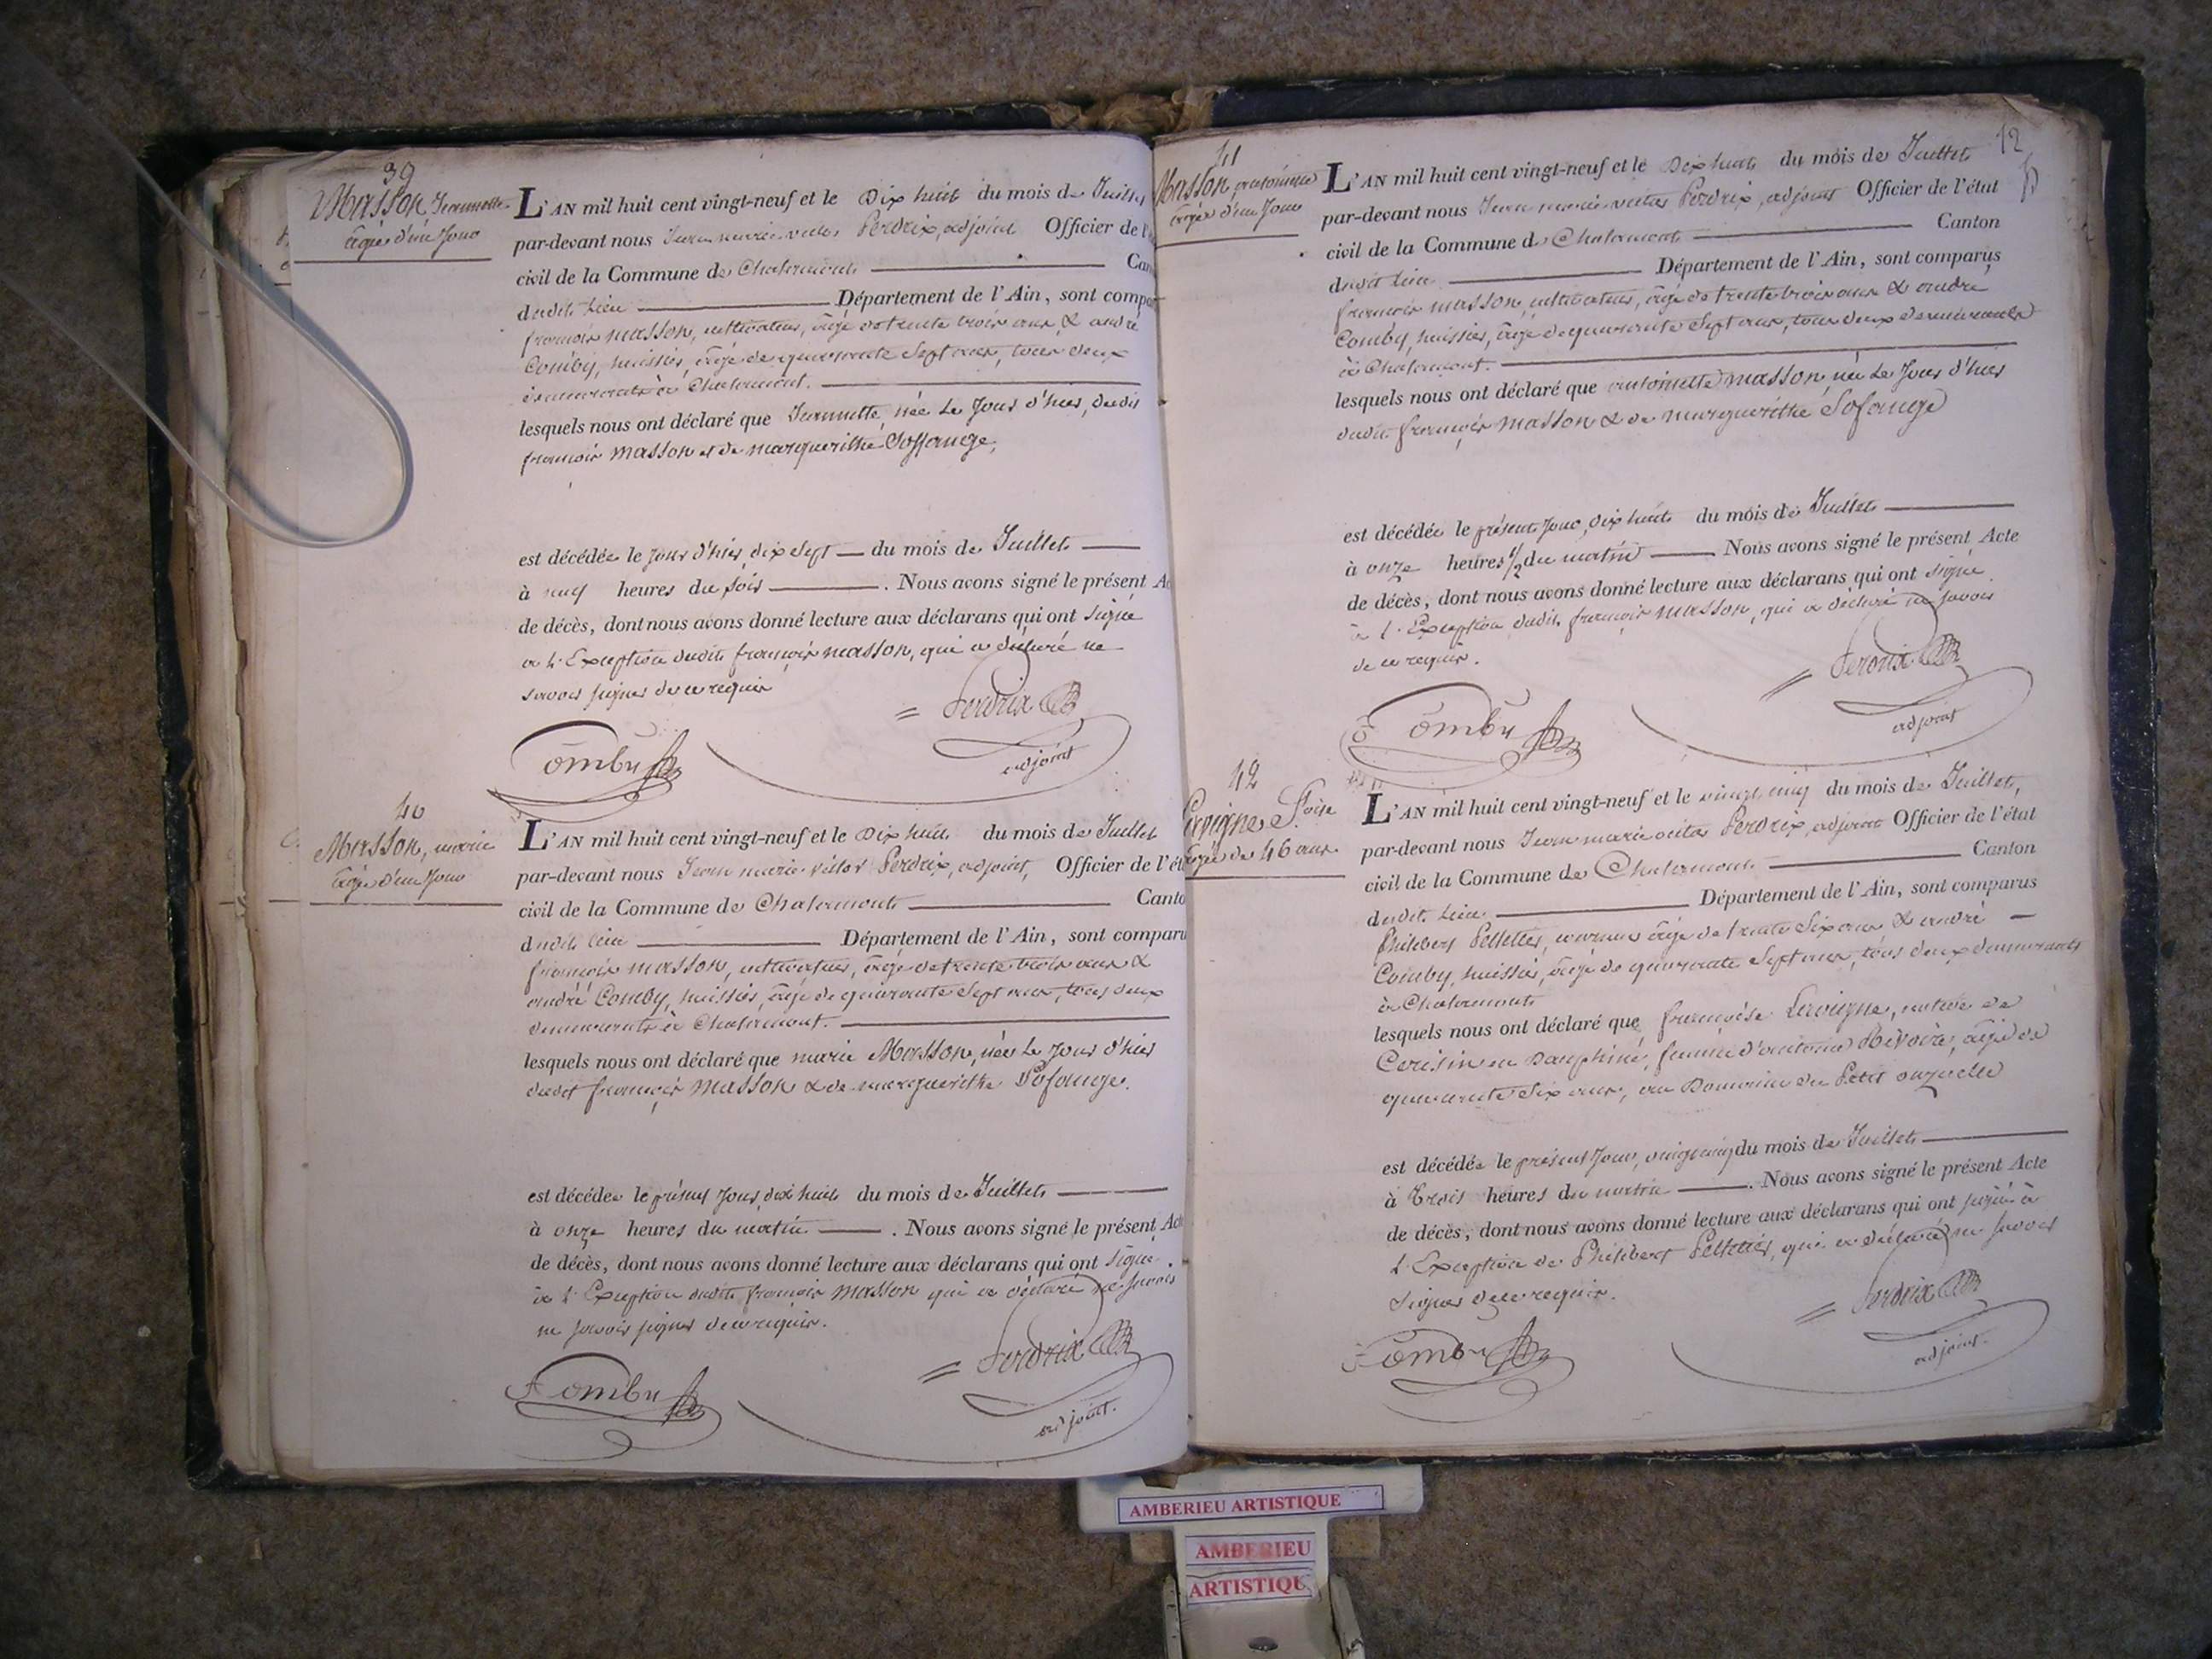 39
Masson, Jeannette
âgée d'un Jour
L'AN mil huit cent vingt-neuf et le Dix huit du mois de Juillet
par-devant nous Jean marie victor Perdrix, adjoint Officier de l'
civil de la Commune de Chalamont Can
dudit Lieu Département de l'Ain, sont compar
françois masson, cultivateur, âgé de trente trois ans & andré
Comby, huissier, âgé de quarante Sept ans, tous deux
demeurants à Chalamont.
lesquels nous ont déclaré que Jeannette, née Le Jour d'hier, dudit
françois masson et de marguerithe Soffange,
est décédée le jour d'hier, dix Sept du mois de Juillet
à neuf heures du soir . Nous avons signé le présent Ac
de décès, dont nous avons donné lecture aux déclarans qui ont signé
à L'Exception dudit françois masson, qui a déclaré ne
savoir signer de ce requis
Perdrix
adjoint
Comby
40
Masson, marie
âgée d'un Jour
L'AN mil huit cent vingt-neuf et le Dix huit du mois de Juillet
par-devant nous Jean marie victor Perdrix, adjoint, Officier de l'ét
civil de la Commune de Chalamont Canto
dudit lieu Département de l'Ain, sont comparu
françois masson, cultivateur, âgé de trente trois ans &
andré Comby, huissier, âgé de quarante Sept ans, tous deux
demeurants à Chalamont.
lesquels nous ont déclaré que marie Masson, née Le Jour d'hier
dudit françois masson & de marguerithe Sofange.
est décédée le présent Jour, dix huit du mois de Juillet
à onze heures du matin . Nous avons signé le présent Act
de décès, dont nous avons donné lecture aux déclarans qui ont signé
à L'Exception dudit françois masson qui a déclaré ne savoir
ne savoir signer de ce requis.
Perdrix
adjoint.
Comby
12
41
Masson, antoinette
âgée d'un Jour
L'AN mil huit cent vingt-neuf et le Dix huit du mois de Juillet
par-devant nous Jean marie victor Perdrix, adjoint Officier de l'état
civil de la Commune de Chalamont Canton
dudit Lieu Département de l'Ain, sont comparus
françois masson, cultivateur, âgé de trente trois ans & andré
Comby, huissier, âgé de quarante Sept ans, tous deux demeurants
à Chalamont.
lesquels nous ont déclaré que antoinette masson, née Le Jour d'hier
dudit françois masson & de marguerithe Sofange
est décédée le présent Jour, dix huit du mois de Juillet
à onze heures 1/2 du matin Nous avons signé le présent Acte
de décès, dont nous avons donné lecture aux déclarans qui ont signé
à L'Exception dudit françois masson, qui a déclaré ne savoir
de ce requis.
Perdrix
adjoint
Comby
42
Lavigne F.oise
âgée de 46 ans.
L'AN mil huit cent vingt-neuf et le vingt cinq du mois de Juillet,
par-devant nous Jean marie victor Perdrix, adjoint Officier de l'état
civil de la Commune de Chalamont Canton
dudit Lieu Département de l'Ain, sont comparus
Philibert Pelletier, âgé de trente Six ans & andré
Comby, huissier, âgé de quarante Sept ans, tous deux demeurants
à Chalamont
lesquels nous ont déclaré que françoise Lavigne, native de
Cerisin en Dauphiné, femme d'antoine Rivoire, âgée de
quarante Six ans, au Domaine du Petit
est décédée le présent Jour, vingt cinq du mois de Juillet
à Trois heures du matin . Nous avons signé le présent Acte
de décès, dont nous avons donné lecture aux déclarans qui ont signé à
L'Exception de Philibert Pelletier, qui a déclaré ne savoir
Signer de ce requis.
Perdrix
adjoint.
Comby
AMBERIEU ARTISTIQUE
AMBERIEU
ARTISTIQU